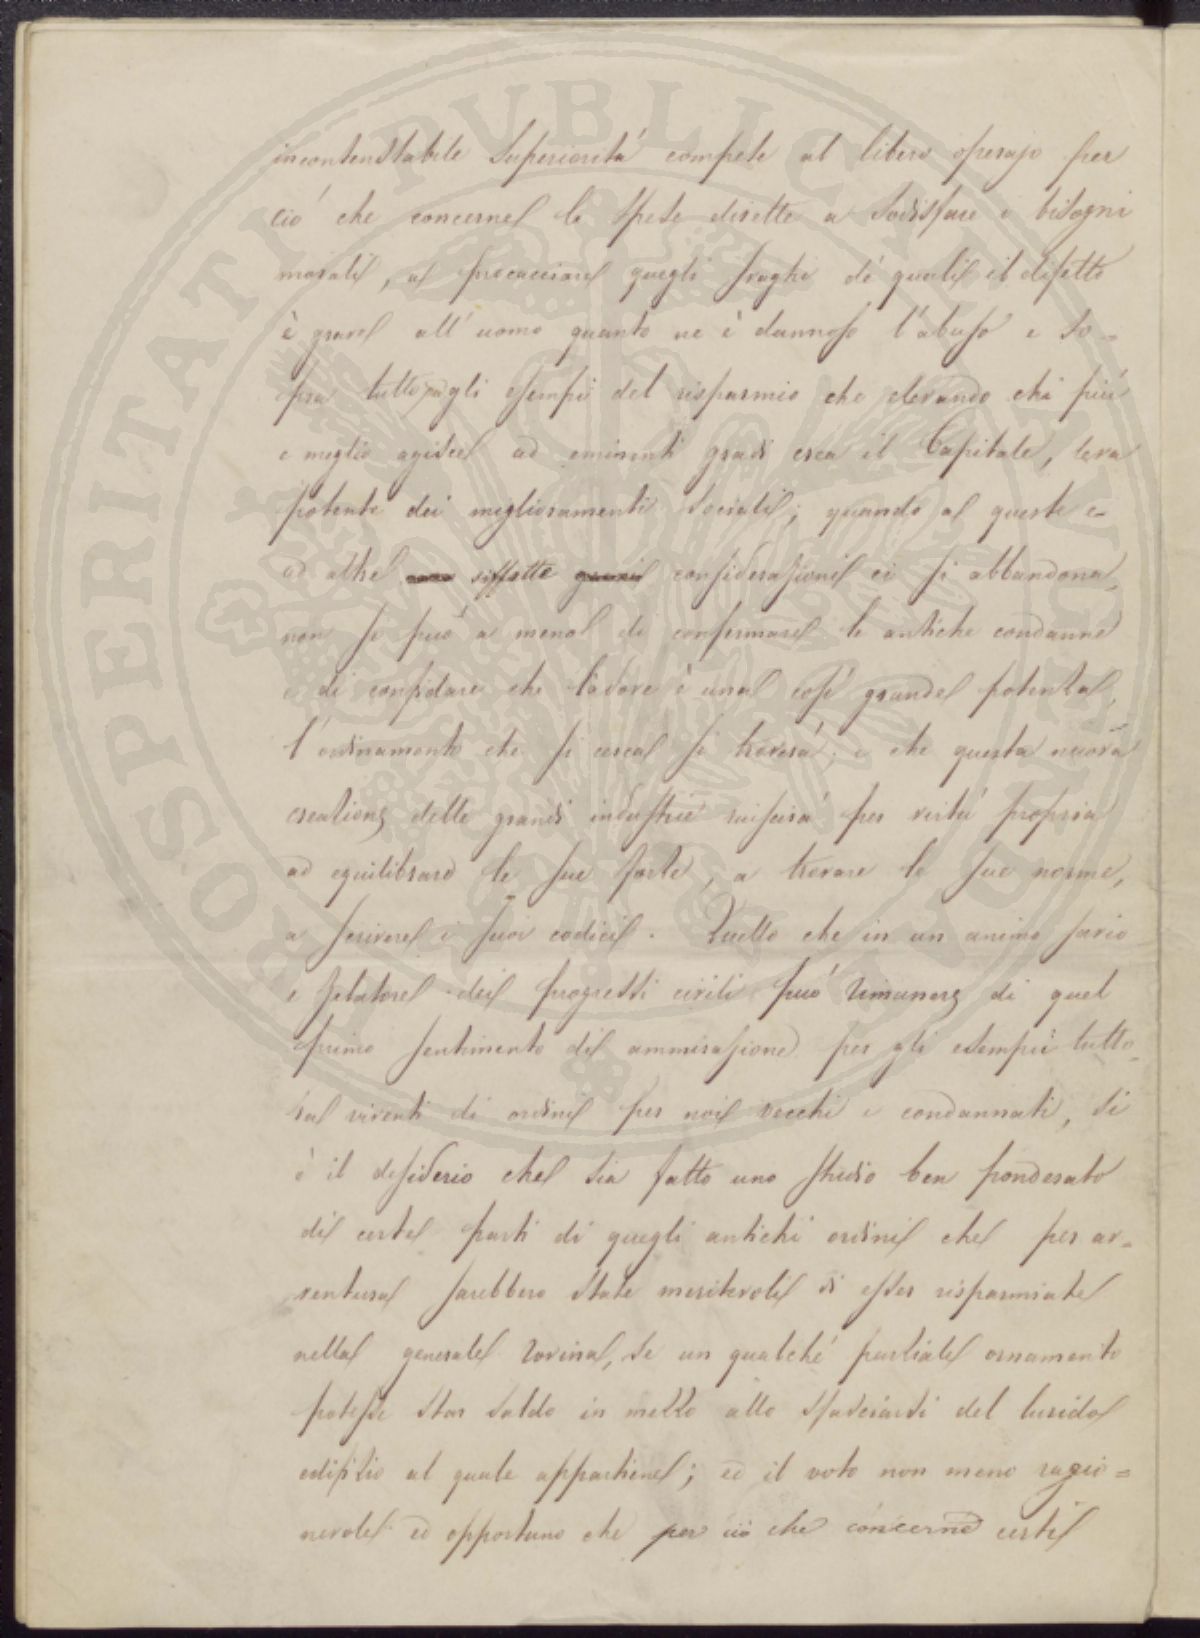 PROSPERITATI PUBLICAE AUGENDAE
incontenstabile superiorità compete al libero operajo per
ciò che concerne le spese dirette a sodisfare i bisogni
morali, a procacciare quegli svaghi de' quali il difetto
è grave all' uomo quanto ne è dannoso l'abuso e so=
pra tutto agli esempii del risparmio che elevando chi più
e meglio agisce ad eminenti gradi crea il Capitale, leva
potente dei miglioramenti sociali; quando a queste e
ad altre siffatte considerazioni ci si abbandona,
non si può a meno di confermare le antiche condanne
e di confidare che laddove è una così grande potenza,
l'ordinamento che si cerca si troverà; e che questa nuova
creazione delle grandi industrie riuscirà per virtù propria
ad equilibrare le sue forze, a trovare le sue norme,
a scrivere i suoi codici. Quello che in un animo savio
e zelatore dei progressi civili può rimanere di quel
primo sentimento di ammirazione per gli esempii tutto=
ra viventi di ordini per noi vecchi e condannati, si
è il desiderio che sia fatto uno studio ben ponderato
di certe parti di quegli antichi ordini che per av=
ventura sarebbero state meritevoli di esser risparmiate
nella generale rovina, se un qualche parziale ornamento
potesse star saldo in mezzo allo sfasciarsi del lurido
edifizio al quale appartiene; ed il voto non meno ragio=
nevole ed opportuno che per ciò che concerne certi